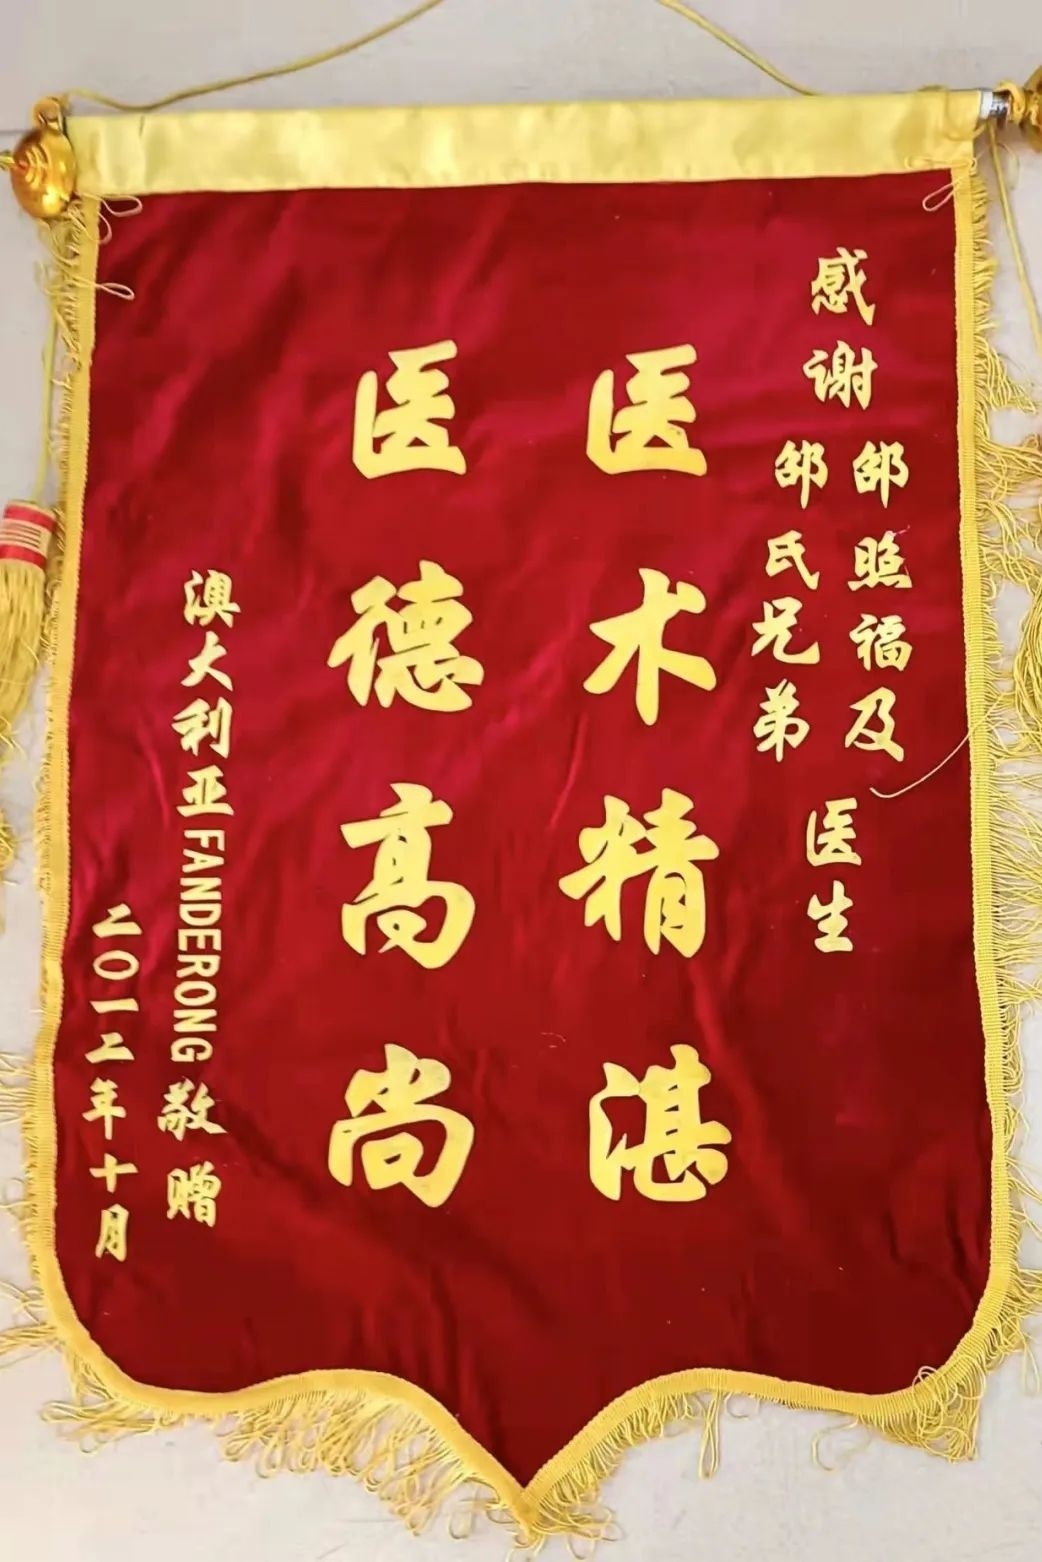 感谢
邵照福及
邵氏兄弟
医生
医术精湛
医德高尚
澳大利亚FANDERONG敬赠
二〇一二年十月